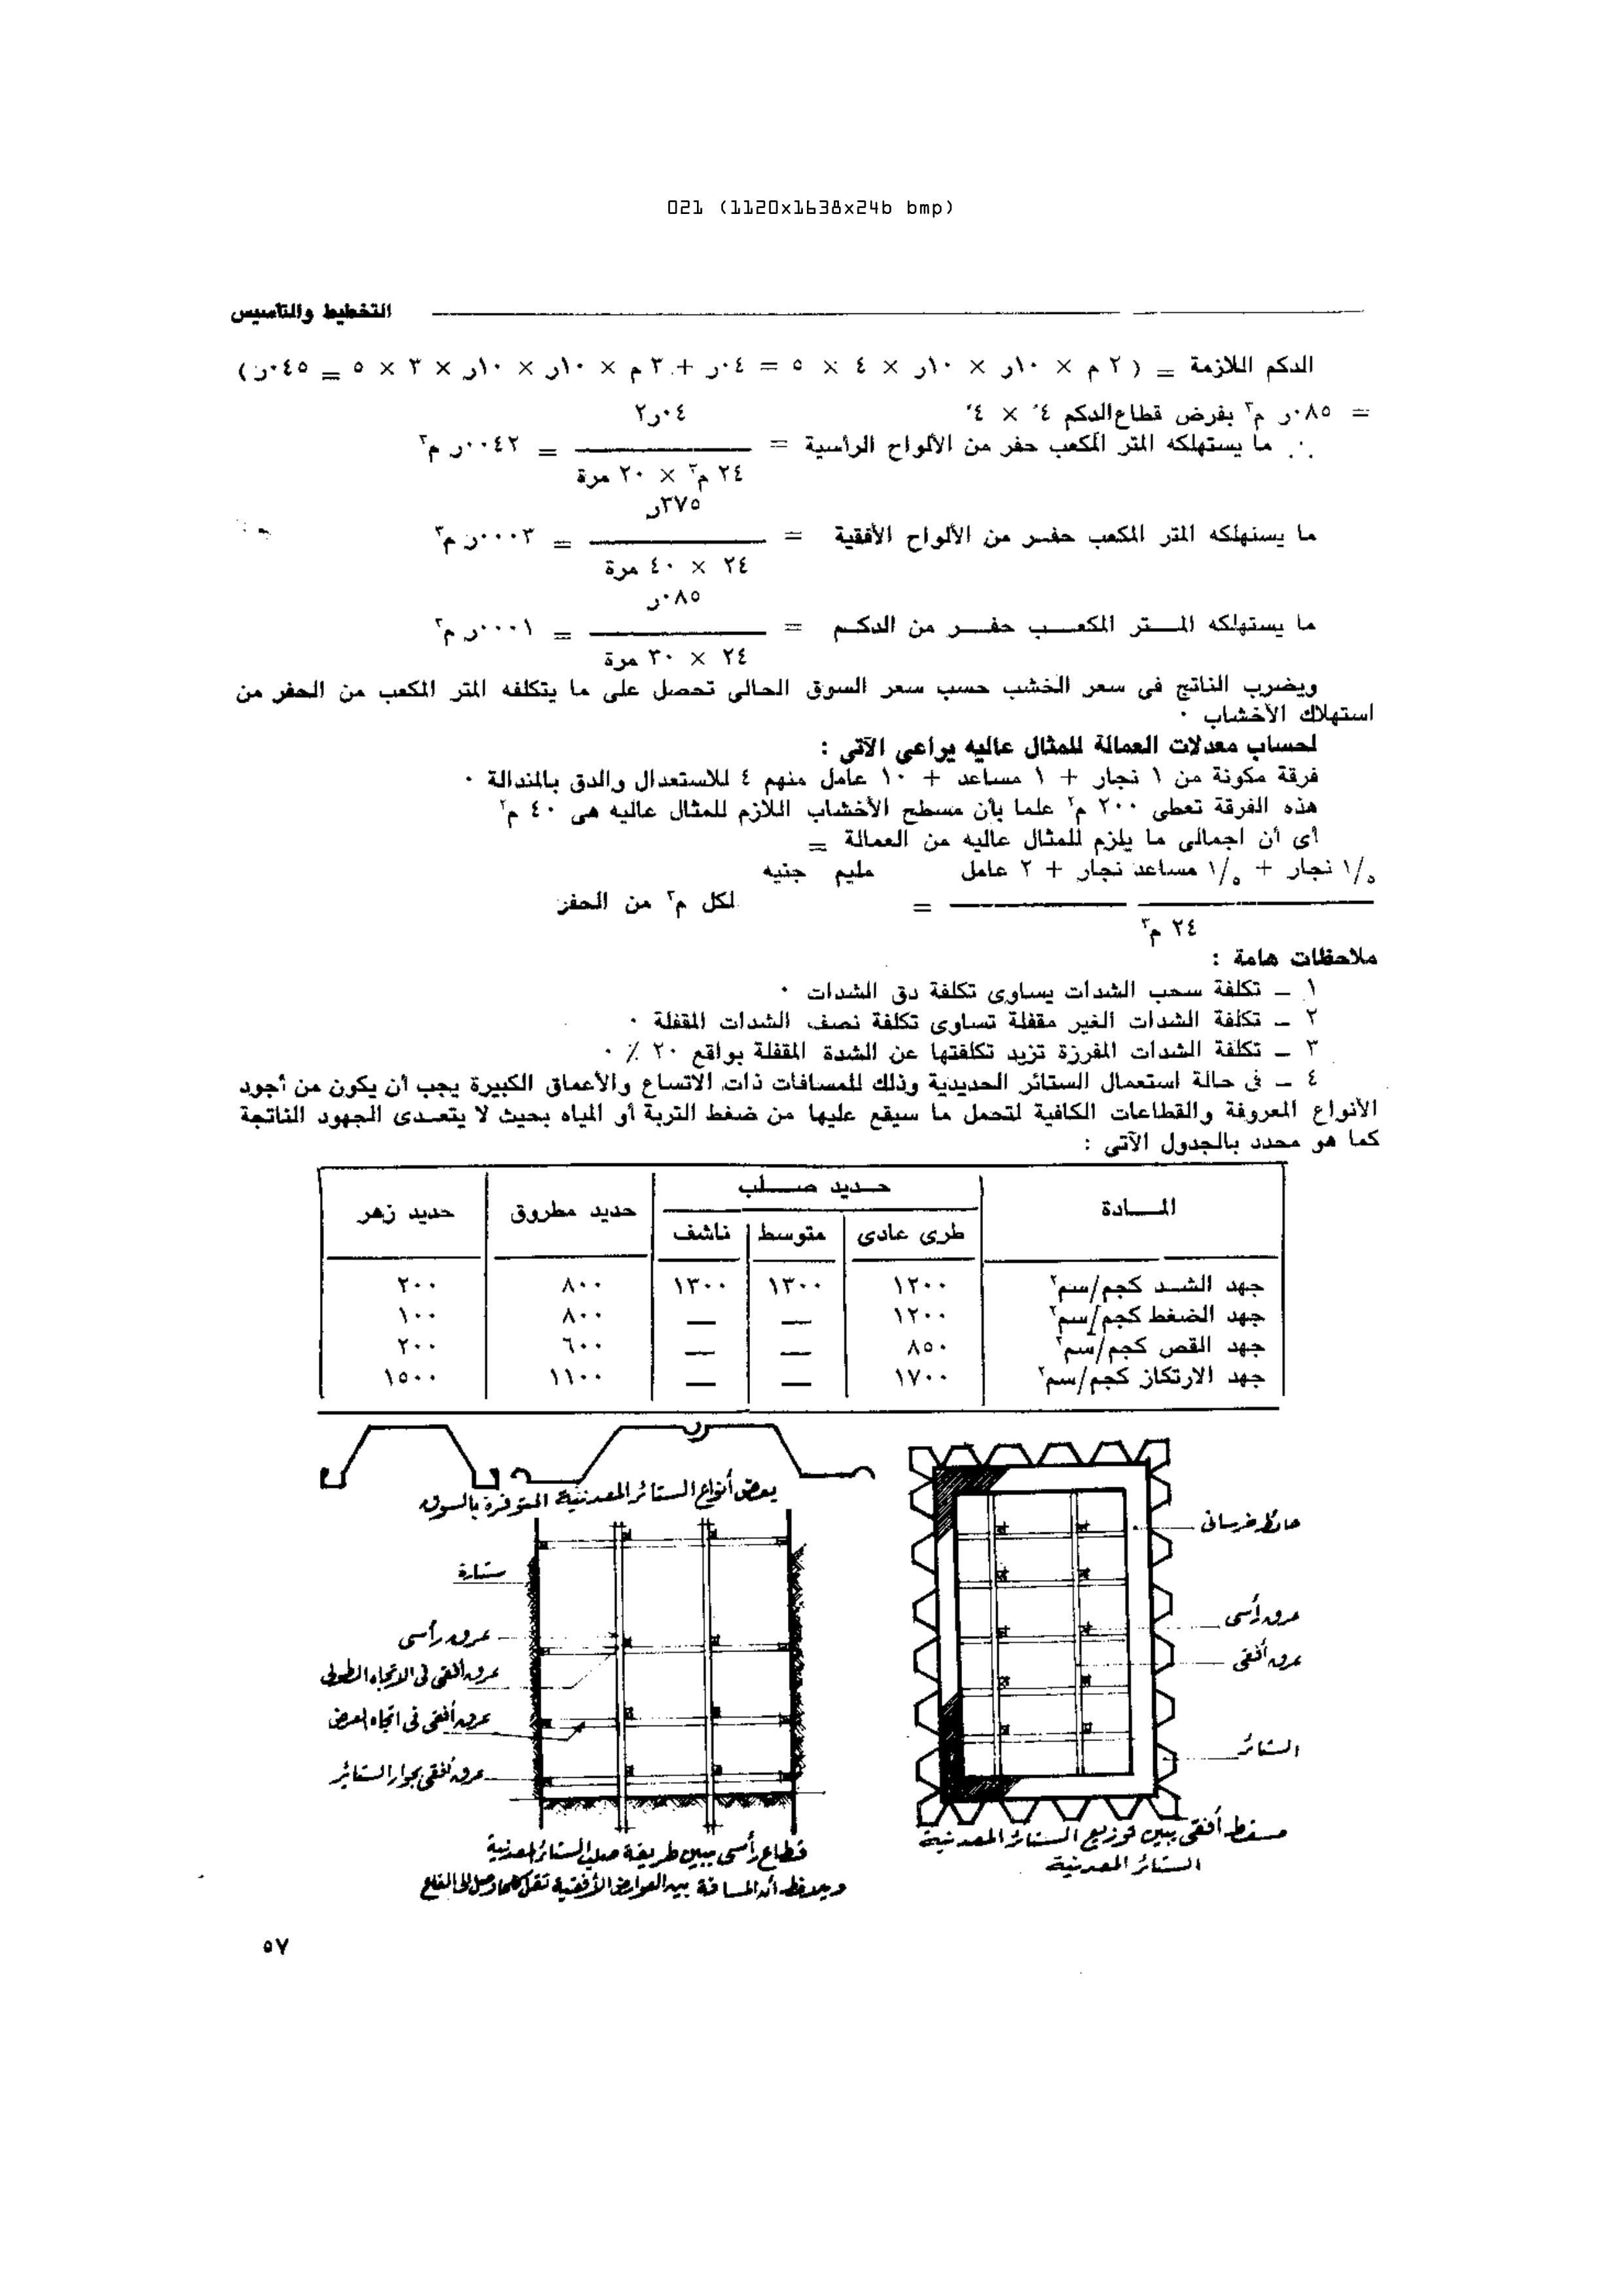 021 (1120x1638x24b bmp)
التخطيط والتأسيس
الدكم اللازمة = ( ٢ م × ١٠ر × ١٠ر × ٤ × ٥ = ٠٤ر + ٣ م × ١٠ر × ١٠ر × ٣ × ٥ = ٠٤٥ر )
= ٠٨٥ر م٣ بفرض قطاع الدكم ٤َ × ٤َ
٠٤ر٢
∴ ما يستهلكه المتر المكعب حفر من الألواح الرأسية = ــــــ = ٠٠٤٢ر م٣
٢٤ م٣ × ٢٠ مرة
٣٧٥ر
ما يستهلكه المتر المكعب حفر من الألواح الأفقية = ــــــ = ٠٠٠٣ر م٣
٢٤ × ٤٠ مرة
٠٨٥ر
ما يستهلكه المتر المكعب حفر من الدكم = ــــــ = ٠٠٠١ر م٣
٢٤ × ٣٠ مرة
ويضرب الناتج فى سعر الخشب حسب سعر السوق الحالى تحصل على ما يتكلفه المتر المكعب من الحفر من
استهلاك الأخشاب ٠
لحساب معدلات العمالة للمثال عاليه يراعى الآتى :
فرقة مكونة من ١ نجار + ١ مساعد + ١٠ عامل منهم ٤ للاستعدال والدق بالمندالة ٠
هذه الفرقة تعطى ٢٠٠ م٢ علما بأن مسطح الأخشاب اللازم للمثال عاليه هى ٤٠ م٢
أى أن اجمالى ما يلزم للمثال عاليه من العمالة =
١/٥ نجار + ١/٥ مساعد نجار + ٢ عامل مليم جنيه
ــــــ = لكل م٣ من الحفر
٢٤ م٣
ملاحظات هامة :
١ ــ تكلفة سحب الشدات يساوى تكلفة دق الشدات ٠
٢ ــ تكلفة الشدات الغير مقفلة تساوى تكلفة نصف الشدات المقفلة ٠
٣ ــ تكلفة الشدات المفرزة تزيد تكلفتها عن الشدة المقفلة بواقع ٢٠ ٪ ٠
٤ ــ فى حالة استعمال الستائر الحديدية وذلك للمسافات ذات الاتساع والأعماق الكبيرة يجب أن يكون من أجود
الأنواع المعروفة والقطاعات الكافية لتحمل ما سيقع عليها من ضغط التربة أو المياه بحيث لا يتعدى الجهود الناتجة
كما هو محدد بالجدول الآتى :
المادة حديد صلب حديد مطروق حديد زهر
طرى عادى متوسط ناشف
جهد الشد كجم/سم٢ ١٢٠٠ ١٣٠٠ ١٣٠٠ ٨٠٠ ٢٠٠
جهد الضغط كجم/سم٢ ١٢٠٠ — — ٨٠٠ ١٠٠
جهد القص كجم/سم٢ ٨٥٠ — — ٦٠٠ ٢٠٠
جهد الارتكاز كجم/سم٢ ١٧٠٠ — — ١١٠٠ ١٥٠٠
بعض أنواع الستائر المعدنية المتوفرة بالسوق
حائط خرسانى
عرق رأسى
عرق أفقى
الستائر
مسقط أفقى يبين توزيع الستائر المعدنية
الستائر المعدنية
ستارة
عرق رأسى
عرق أفقى فى الاتجاه الطولى
عرق أفقى فى اتجاه العرض
عرق أفقى بجوار الستائر
قطاع رأسى يبين طريقة صلب الستائر المعدنية
ويلاحظ أن المسافة بين العوارض الأفقية تقل كلما وصل إلى القاع
٥٧